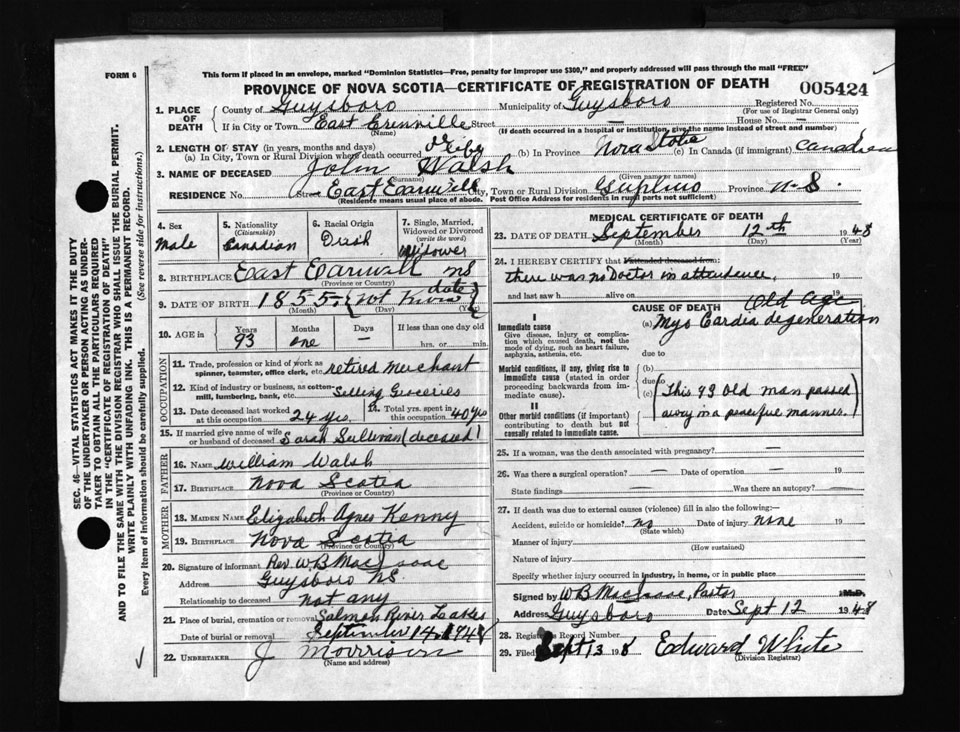 This form if placed in an envelope, marked "Dominion Statistics—Free, penalty for improper use $300," and properly addressed will pass through the mail "FREE"
FORM 6
PROVINCE OF NOVA SCOTIA—CERTIFICATE OF REGISTRATION OF DEATH
005424
SEC. 46—VITAL STATISTICS ACT MAKES IT THE DUTY
OF THE UNDERTAKER OR PERSON ACTING AS UNDER-
TAKER TO OBTAIN ALL THE PARTICULARS REQUIRED
IN THE "CERTIFICATE OF REGISTRATION OF DEATH"
AND TO FILE THE SAME WITH THE DIVISION REGISTRAR WHO SHALL ISSUE THE BURIAL PERMIT.
WRITE PLAINLY WITH UNFADING INK. THIS IS A PERMANENT RECORD.
Every item of information should be carefully supplied. (See reverse side for instructions.)
1. PLACE OF DEATH
County of Guysboro Municipality of Guysboro Registered No.
(For use of Registrar General only)
If in City or Town East Street — House No. —
(Name) (If death occurred in a hospital or institution, give the name instead of street and number)
2. LENGTH OF STAY (in years, months and days)
(a) In City, Town or Rural Division where death occurred life (b) In Province Nova Scotia (c) In Canada (if immigrant) Canadian
3. NAME OF DECEASED John Walsh
(Surname) (Given name or names)
RESIDENCE No. Street East City, Town or Rural Division Province N.S.
(Residence means usual place of abode. Post Office Address for residents in rural parts not sufficient)
4. Sex
Male
5. Nationality
(Citizenship)
Canadian
6. Racial Origin
Irish
7. Single, Married, Widowed or Divorced
(write the word)
Widower
8. BIRTHPLACE East NS
(Province or Country)
9. DATE OF BIRTH 1855 - (Not Known date)
(Month) (Day) (Year)
10. AGE in
Years Months Days If less than one day old
93 one — hrs. or min.
OCCUPATION
11. Trade, profession or kind of work as spinner, teamster, office clerk, etc. retired merchant
12. Kind of industry or business, as cotton-mill, lumbering, bank, etc. Selling Groceries
13. Date deceased last worked at this occupation 24 yrs.
14. Total yrs. spent in this occupation 40 yrs
15. If married give name of wife or husband of deceased Sarah Sullivan (deceased)
FATHER
16. NAME William Walsh
17. BIRTHPLACE Nova Scotia
(Province or Country)
MOTHER
18. MAIDEN NAME Elizabeth Agnes Kenny
19. BIRTHPLACE Nova Scotia
(Province or Country)
20. Signature of informant Rev. W.B. MacIsaac
Address Guysboro NS
Relationship to deceased not any
21. Place of burial, cremation or removal Salmon River Lakes
Date of burial or removal September 14, 1948
22. UNDERTAKER J Morrison
(Name and address)
MEDICAL CERTIFICATE OF DEATH
23. DATE OF DEATH September 12th 1948
(Month) (Day) (Year)
24. I HEREBY CERTIFY that I attended deceased from:
there was no Doctor in attendence. 19
and last saw h alive on 19
CAUSE OF DEATH Old Age
I
Immediate cause
Give disease, injury or complication which caused death, not the mode of dying, such as heart failure, asphyxia, asthenia, etc.
(a) Myo Cardia degeneration
due to
Morbid conditions, if any, giving rise to immediate cause (stated in order proceeding backwards from immediate cause).
(b)
due to
(c) (This 93 old man passed away in a peaceful manner.)
II
Other morbid conditions (if important) contributing to death but not causally related to immediate cause.
25. If a woman, was the death associated with pregnancy? —
26. Was there a surgical operation? — Date of operation — 19
State findings Was there an autopsy? —
27. If death was due to external causes (violence) fill in also the following:
Accident, suicide or homicide? no Date of injury none 19
(State which)
Manner of injury
(How sustained)
Nature of injury
Specify whether injury occurred in industry, in home, or in public place
Signed by W B MacIsaac, Pastor M.D.
Address Guysboro Date Sept 12 1948
28. Registrar's Record Number
29. Filed Sept 13 1948 Edward White
(Division Registrar)